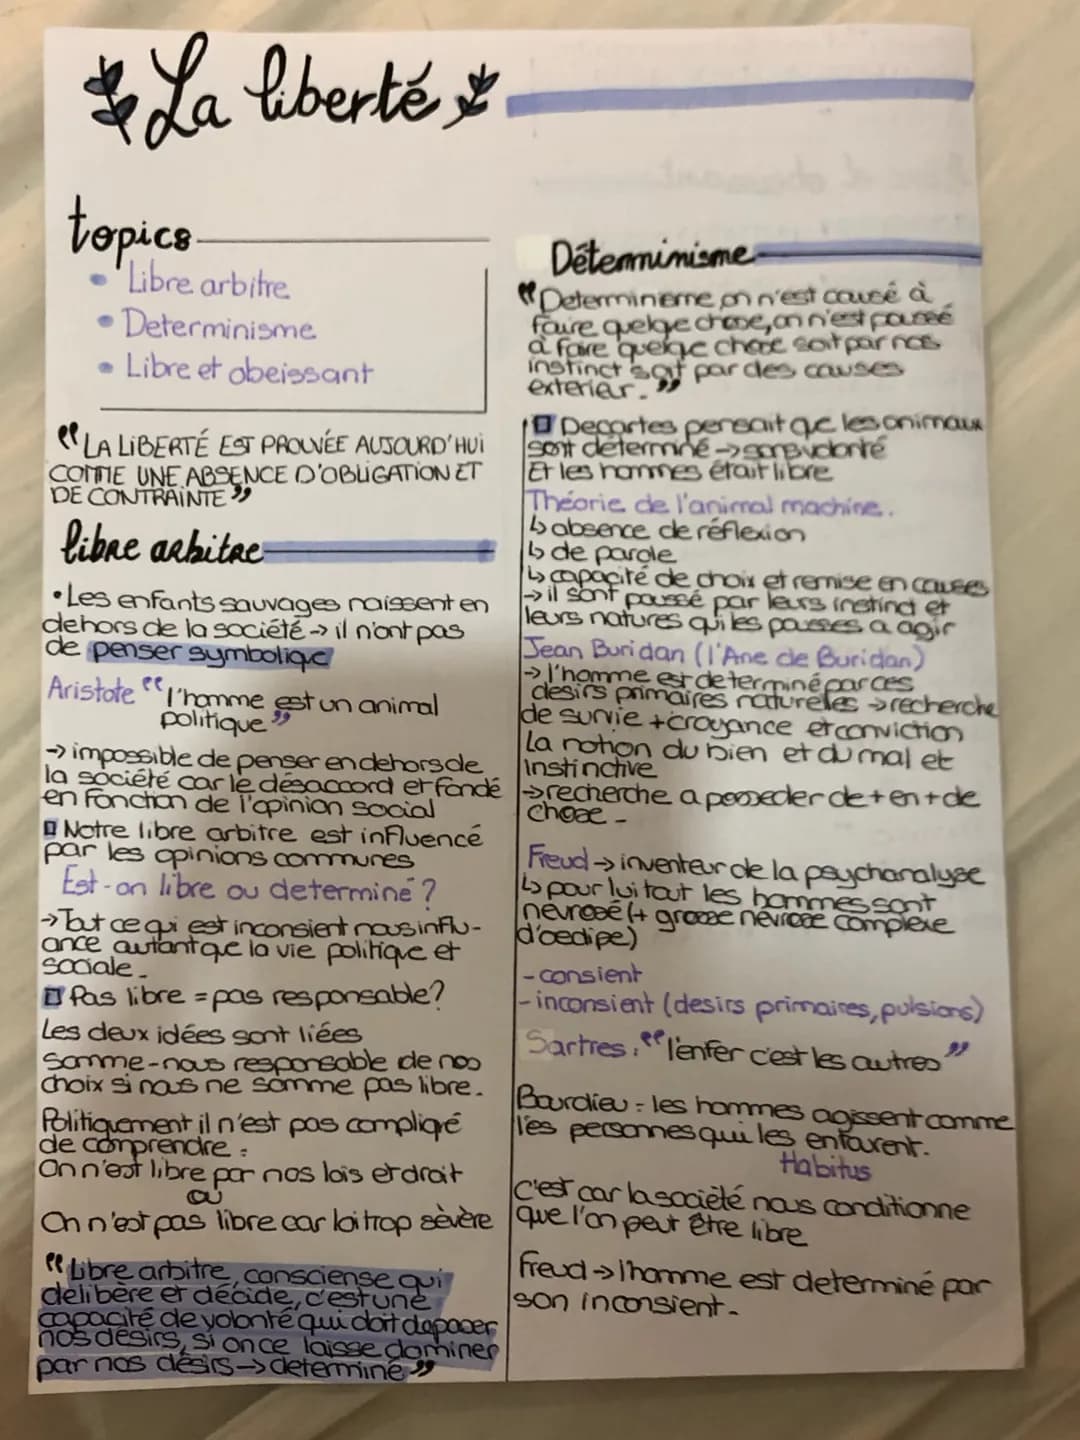 La liberté
topics
• Libre arbitre
• Determinisme
• Libre et obeissant
"LA LIBERTÉ EST PROUVÉE AUJOURD'HUI
COMME UNE ABSENCE D'OBLIGATION ET
DE CONTRAINTE"
libre arbitre
• Les enfants sauvages naissent en
dehors de la société → il n'ont pas
de penser symboliqe
Aristote "l'homme est un animal
politique"
→ impossible de penser en dehors de
la société car le désaccord et fondé
en fonction de l'opinion social
Notre libre arbitre est influencé
par les opinions communes
Est-on libre ou determiné ?
→ Tout ce qi est inconsient nous influ-
ance autant que la vie politiqe et
sociale.
Pas libre = pas responsable?
Les deux idées sont liées
Somme-nous responsable de nos
choix si nous ne somme pas libre.
Politiquement il n'est pas compliqé
de comprendre :
On n'est libre par nos lois et droit
ou
On n'est pas libre car loi trop sèvère
"Libre arbitre, consciense qui
delibère et décide, c'est une
capacité de volonté qui doit depacer
nos désirs, si on ce laisse dominer
par nos désirs → determiné"
Déterminisme
"Determinisme on n'est causé à
faire quelqe chose, on n'est poussé
a faire quelqe chose soit par nos
instinct soit par des causes
exterieur."
Decartes pensait qe les animaux
sont déterminé →
Et les hommes était libre
Théorie de l'animal machine.
↳ absence de réflexion
↳ de parole
↳ capacité de choix et remise en causes
→ il sont poussé par leurs instinct et
leurs natures qui les pousses a agir
Jean Buridan (l'Ane de Buridan)
→ l'homme est determiné par ces
desirs primaires naturelles → recherche
de survie + croyance et conviction
La notion du bien et du mal et
instinctive
→ recherche a posseder de + en + de
chose -
Freud → inventeur de la psychanalyse
↳ pour lui tout les hommes sont
nevrosé (+ grosse névrose complexe
d'oedipe)
- consient
- inconsient (desirs primaires, pulsions)
Sartres : "l'enfer c'est les autres"
Bourdieu : les hommes agissent comme
les personnes qui les entourent.
Habitus
c'est car la société nous conditionne
que l'on peut être libre
Freud → l'homme est determiné par
son inconsient -